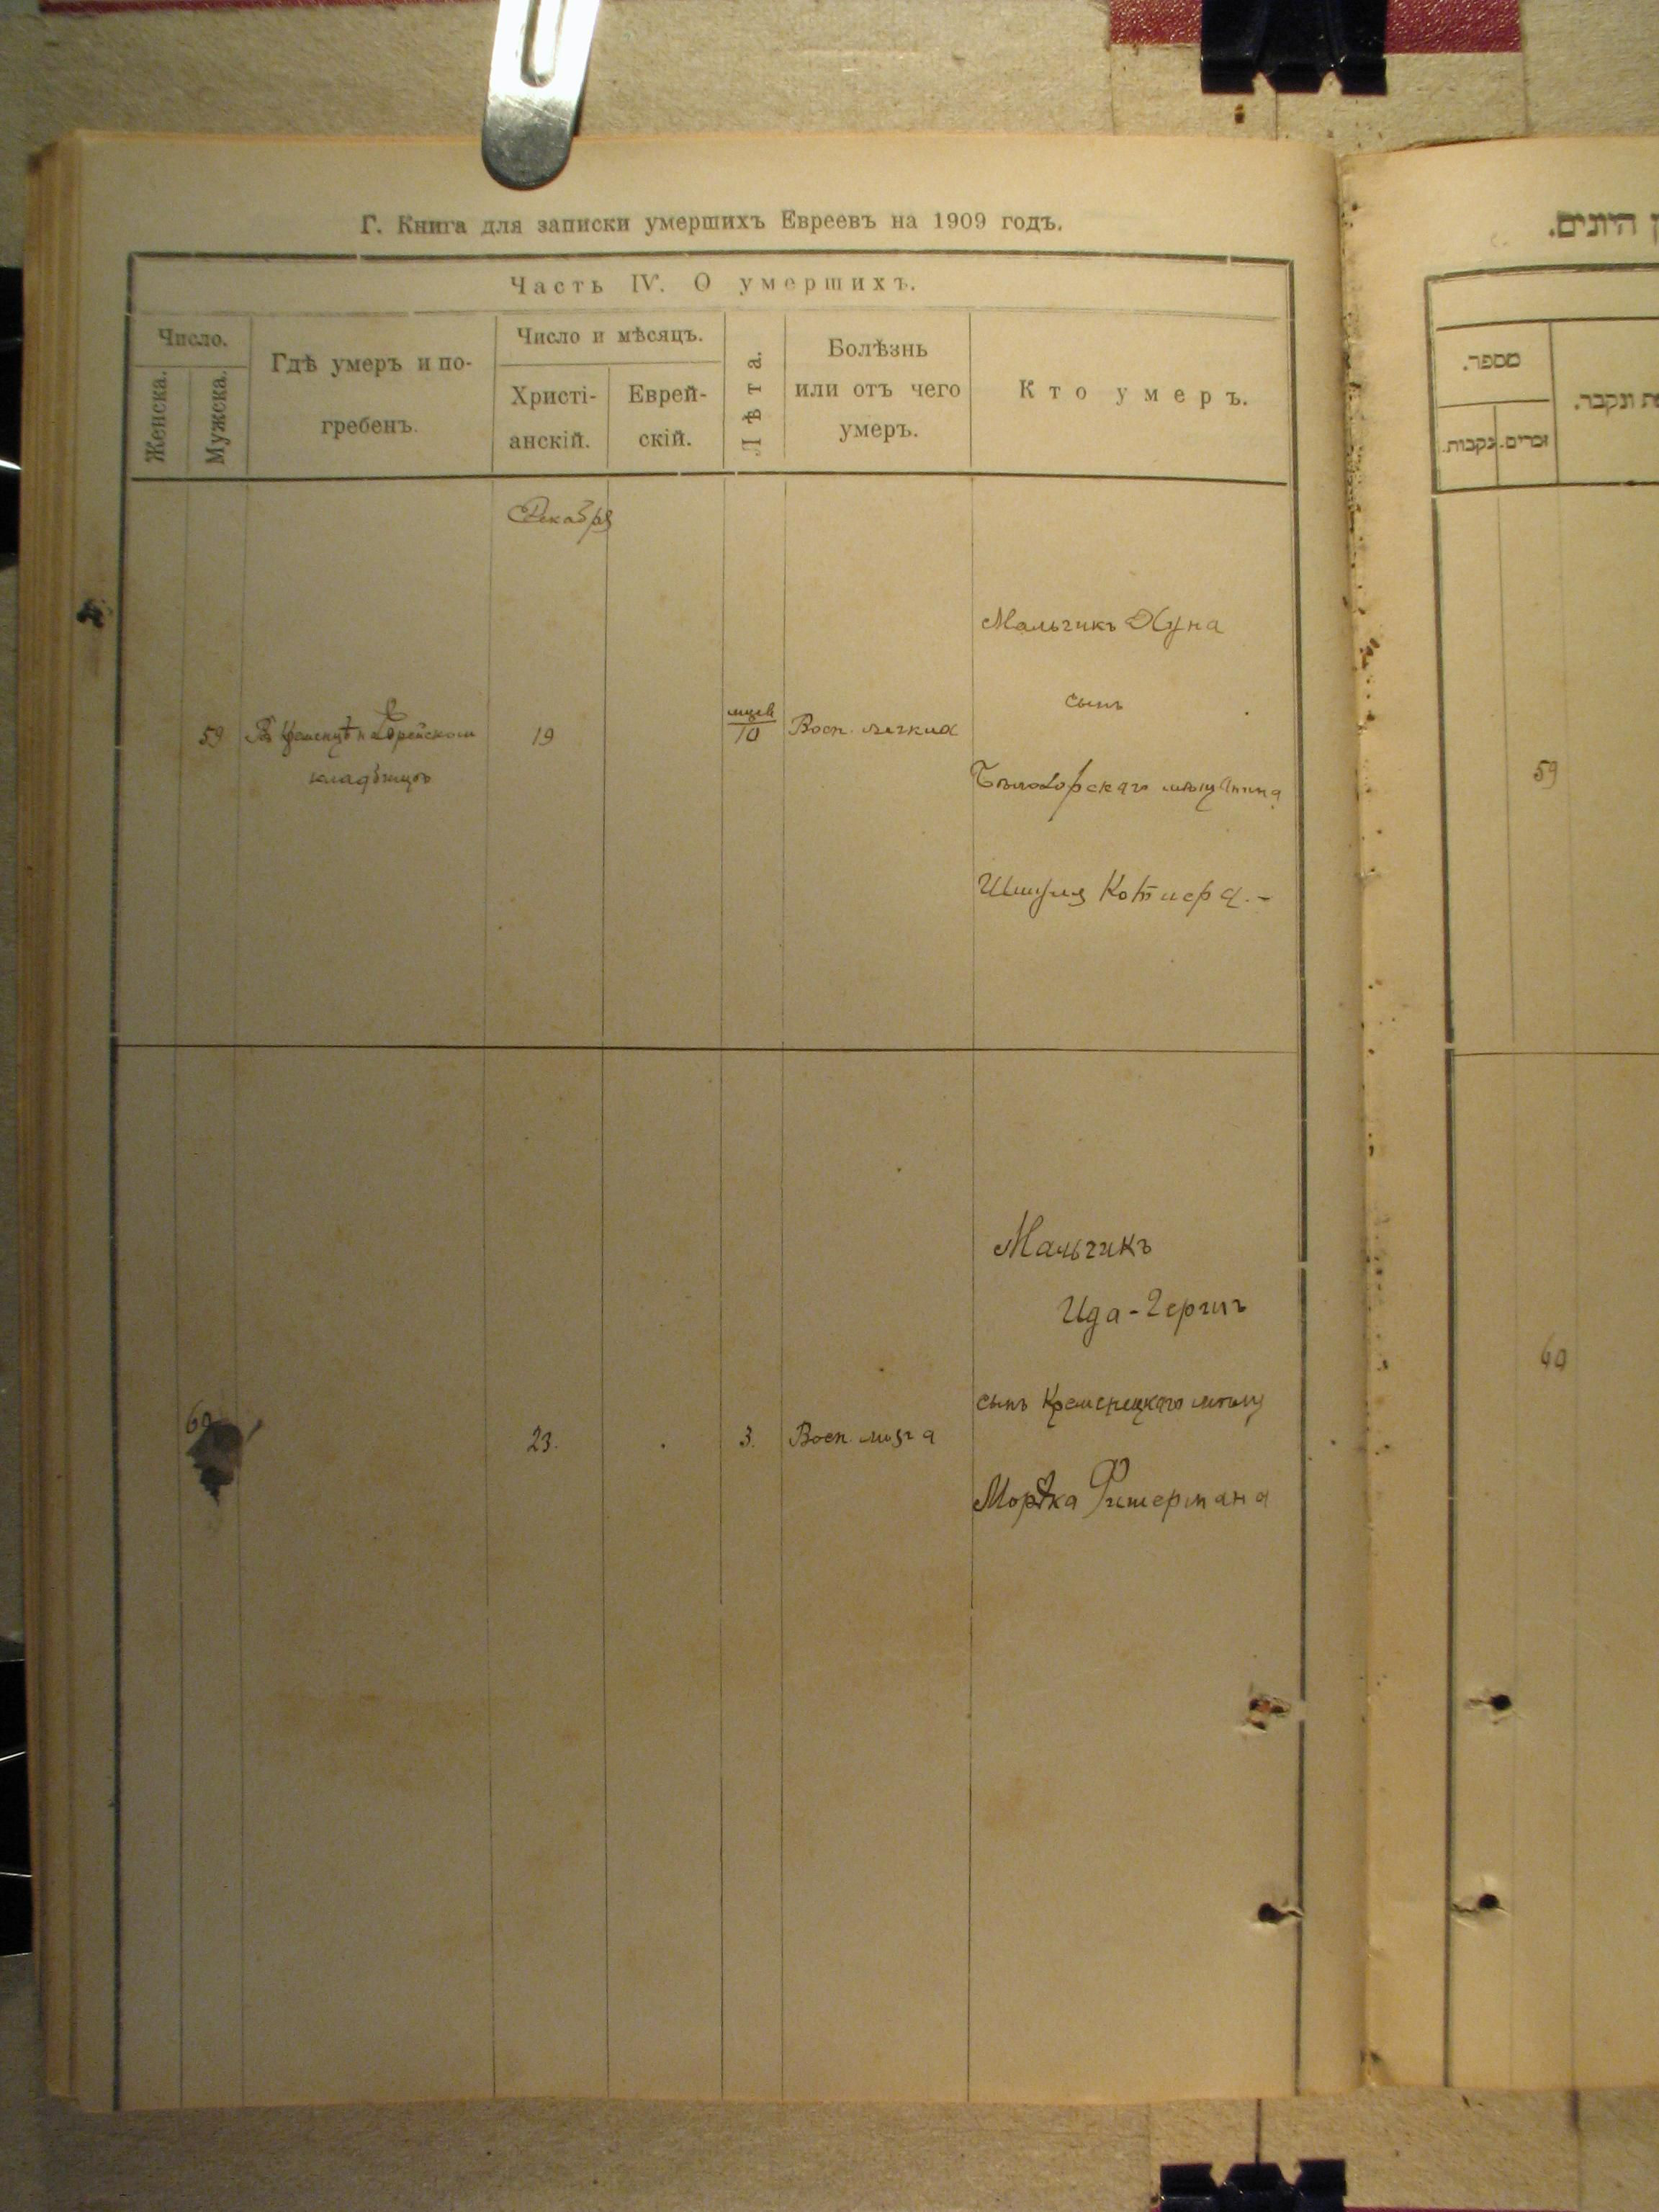 Г. Книга для записки умершихъ Евреевъ на 1909 годъ.
Часть IV. О умершихъ.
Число.
Женска.
Мужска.
Гдѣ умеръ и по-
гребенъ.
Число и мѣсяцъ.
Христі-
анскій.
Еврей-
скій.
Лѣта.
Болѣзнь
или отъ чего
умеръ.
Кто умеръ.
Декабря
59
Въ Кременцѣ н Еврейском
кладбищѣ
19
10
Восп. легких
Мальчикъ Хуна
сынъ
мѣщанина
Шмуля Котлера.-
60
23.
3.
Восп. мозга
Мальчикъ
Ида-Гершъ
сынъ Кременецкаго мѣщ
Мордка Фишермана
ן היונים.
מספר.
נקבות.
זכרים.
ונקבר.
59
60